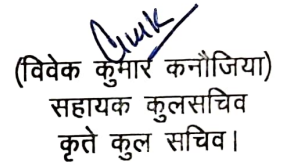 (विवेक कुमार कनौजिया)
सहायक कुलसचिव
कृते कुल सचिव।